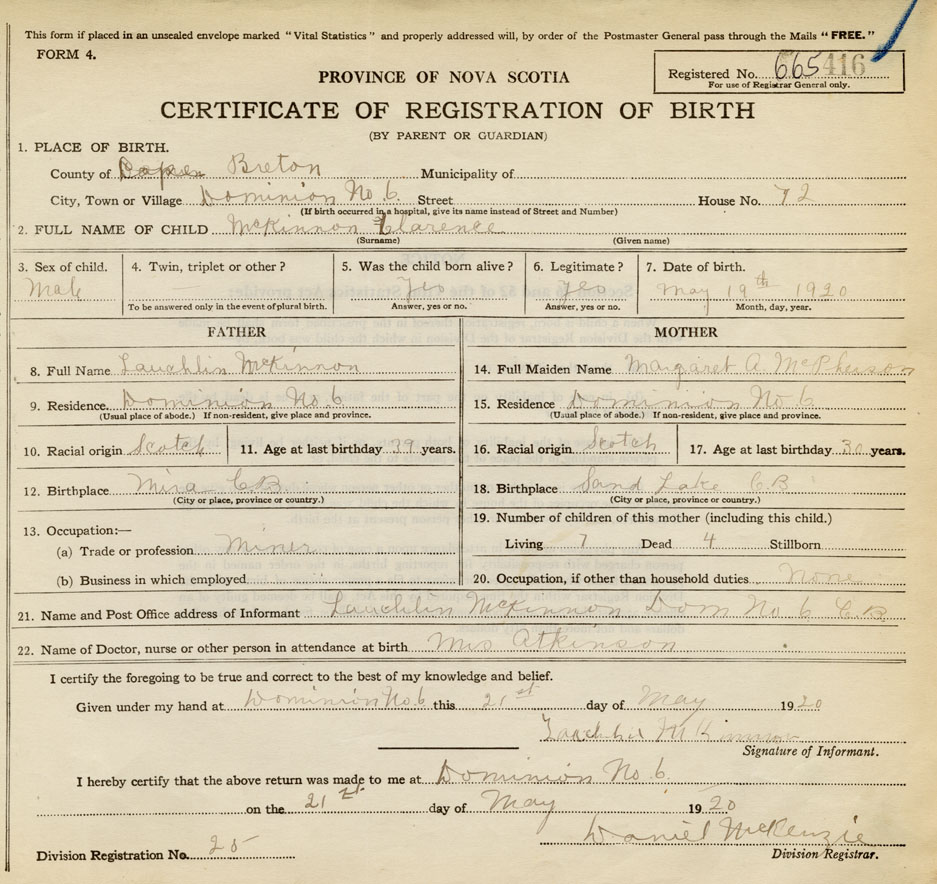 This form if placed in an unsealed envelope marked "Vital Statistics" and properly addressed will, by order of the Postmaster General pass through the Mails "FREE."
FORM 4.
PROVINCE OF NOVA SCOTIA
Registered No. 665 416
For use of Registrar General only.
CERTIFICATE OF REGISTRATION OF BIRTH
(BY PARENT OR GUARDIAN)
1. PLACE OF BIRTH.
County of Cape Breton Municipality of
City, Town or Village Dominion No. 6. Street House No. 72
(If birth occurred in a hospital, give its name instead of Street and Number)
2. FULL NAME OF CHILD McKinnon Clarence
(Surname) (Given name)
3. Sex of child. 4. Twin, triplet or other? 5. Was the child born alive? 6. Legitimate? 7. Date of birth.
Male yes yes May 19th 1920
To be answered only in the event of plural birth. Answer, yes or no. Answer, yes or no. Month, day, year.
FATHER MOTHER
8. Full Name Lauchlin McKinnon 14. Full Maiden Name Margaret A. McPherson
9. Residence Dominion No. 6 15. Residence Dominion No. 6
(Usual place of abode.) If non-resident, give place and province. (Usual place of abode.) If non-resident, give place and province.
10. Racial origin Scotch 11. Age at last birthday 39 years. 16. Racial origin Scotch 17. Age at last birthday 30 years.
12. Birthplace Mira C.B 18. Birthplace Sand Lake C.B
(City or place, province or country.) (City or place, province or country.)
13. Occupation:— 19. Number of children of this mother (including this child.)
(a) Trade or profession Miner Living 7 Dead 4 Stillborn
(b) Business in which employed 20. Occupation, if other than household duties. None
21. Name and Post Office address of Informant Lauchlin McKinnon Dom No. 6 C.B.
22. Name of Doctor, nurse or other person in attendance at birth Mrs Atkinson
I certify the foregoing to be true and correct to the best of my knowledge and belief.
Given under my hand at Dominion No. 6 this 21st day of May 1920
Lauchlin McKinnon
Signature of Informant.
I hereby certify that the above return was made to me at Dominion No. 6.
on the 21st day of May 1920
Daniel McKenzie
Division Registration No. 25 Division Registrar.